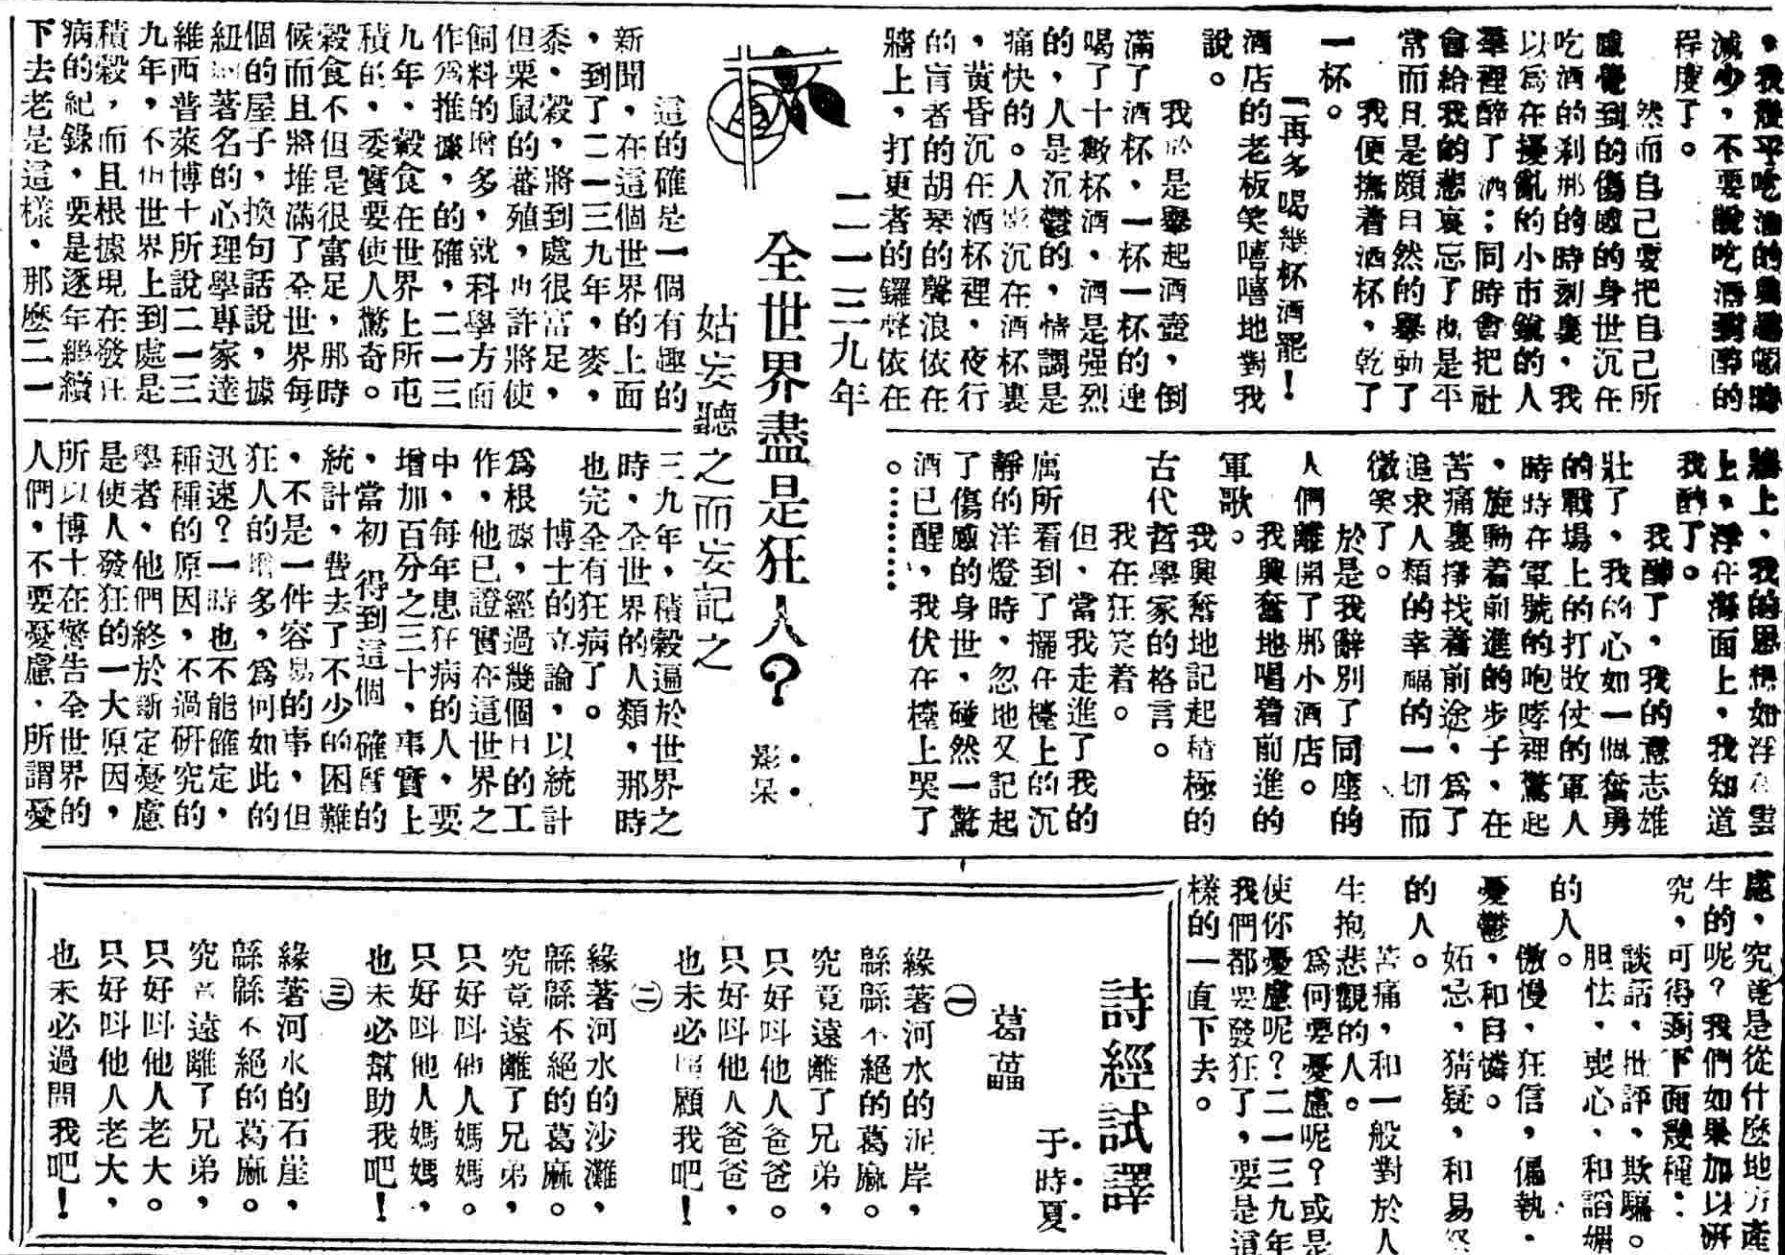 ，我幾乎吃酒的
減少，不要說吃酒到醉的
程度了。
然而自己要把自己所
感覺到的傷感的身世沉在
吃酒的剎那的時刻裏，我
以爲在擾亂的小市鎮的人
羣裡醉了酒；同時會把社
會給我的悲哀忘了也是平
常而且是頗自然的舉動了
我便撫着酒杯，乾了
一杯。
「再多喝幾杯酒罷！
酒店的老板笑嘻嘻地對我
說。
我於是舉起酒壺，倒
滿了酒杯，一杯一杯的連
喝了十數杯酒，酒是强烈
的，人是沉鬱的，情調是
痛快的。人沉在酒杯裏
，黃昏沉在酒杯裡，夜行
的盲者的胡琴的聲浪依在
牆上，打更者的鑼聲依在
牆上，我的思想如浮在雲
上，浮在海面上，我知道
我醉了。
我醉了，我的意志雄
壯了，我的心如一個奮勇
的戰場上的打敗仗的軍人
時時在軍號的咆哮裡驚起
，旋動着前進的步子，在
苦痛裏擇找着前途，爲了
追求人類的幸福的一切而
微笑了。
於是我辭別了同座的
人們離開了那小酒店。
我興奮地唱着前進的
軍歌。
我興奮地記起積極的
古代哲學家的格言。
我在狂笑着。
但，當我走進了我的
寓所看到了擺在檯上的沉
靜的洋燈時，忽地又記起
了傷感的身世，碰然一驚
酒已醒，我伏在檯上哭了
。……
二一三九年
全世界盡是狂人？
影呆
姑妄聽之而妄記之
這的確是一個有趣的
新聞，在這個世界的上面
，到了二一三九年，麥，
黍，穀，將到處很富足，
但栗鼠的蕃殖，也許將使
飼料的增多，就科學方面
作爲推據，的確，二一三
九年，穀食在世界上所屯
積的，委實要使人驚奇。
穀食不但是很富足，那時
候而且將堆滿了全世界每
個的屋子，換句話說，據
紐著名的心理學專家達
維西普萊博士所說二一三
九年，不但世界上到處是
積穀，而且根據現在發狂
病的紀錄，要是逐年繼續
下去老是這樣，那麼二一
三九年，積穀逼於世界之
時，全世界的人類，那時
也完全有狂病了。
博士的立論，以統計
爲根據，經過幾個月的工
作，他已證實在這世界之
中，每年患狂病的人，要
增加百分之三十，事實上
，當初 得到這個 確實的
統計，費去了不少的困難
，不是一件容易的事，但
狂人的增多，爲何如此的
迅速？一時也不能確定，
種種的原因，不過研究的
學者，他們終於斷定憂慮
是使人發狂的一大原因，
所以博士在警告全世界的
人們，不要憂慮，所謂憂
慮，究竟是從什麼地方產
生的呢？我們如果加以研
究，可得到下面幾種：
談話，批評，欺騙。
胆怯，喪心，和諂媚
的人。
傲慢，狂信，偏執，
憂鬱，和自憐。
妬忌，猜疑，和易怒
的人。
苦痛，和一般對於人
生抱悲觀的人。
爲何要憂慮呢？或是
使你憂慮呢？二一三九年
我們都要發狂了，要是這
樣的一直下去。
詩經試譯
于時夏
葛藟
㊀
緣著河水的泥岸，
緜緜不絕的葛麻。
究竟遠離了兄弟，
只好叫他人爸爸。
只好叫他人爸爸，
也未必眷顧我吧！
㊁
緣著河水的沙灘，
緜緜不絕的葛麻。
究竟遠離了兄弟，
只好叫他人媽媽。
只好叫他人媽媽，
也未必幫助我吧！
㊂
緣著河水的石崖，
緜緜不絕的葛麻。
究竟遠離了兄弟，
只好叫他人老大。
只好叫他人老大，
也未必過問我吧！